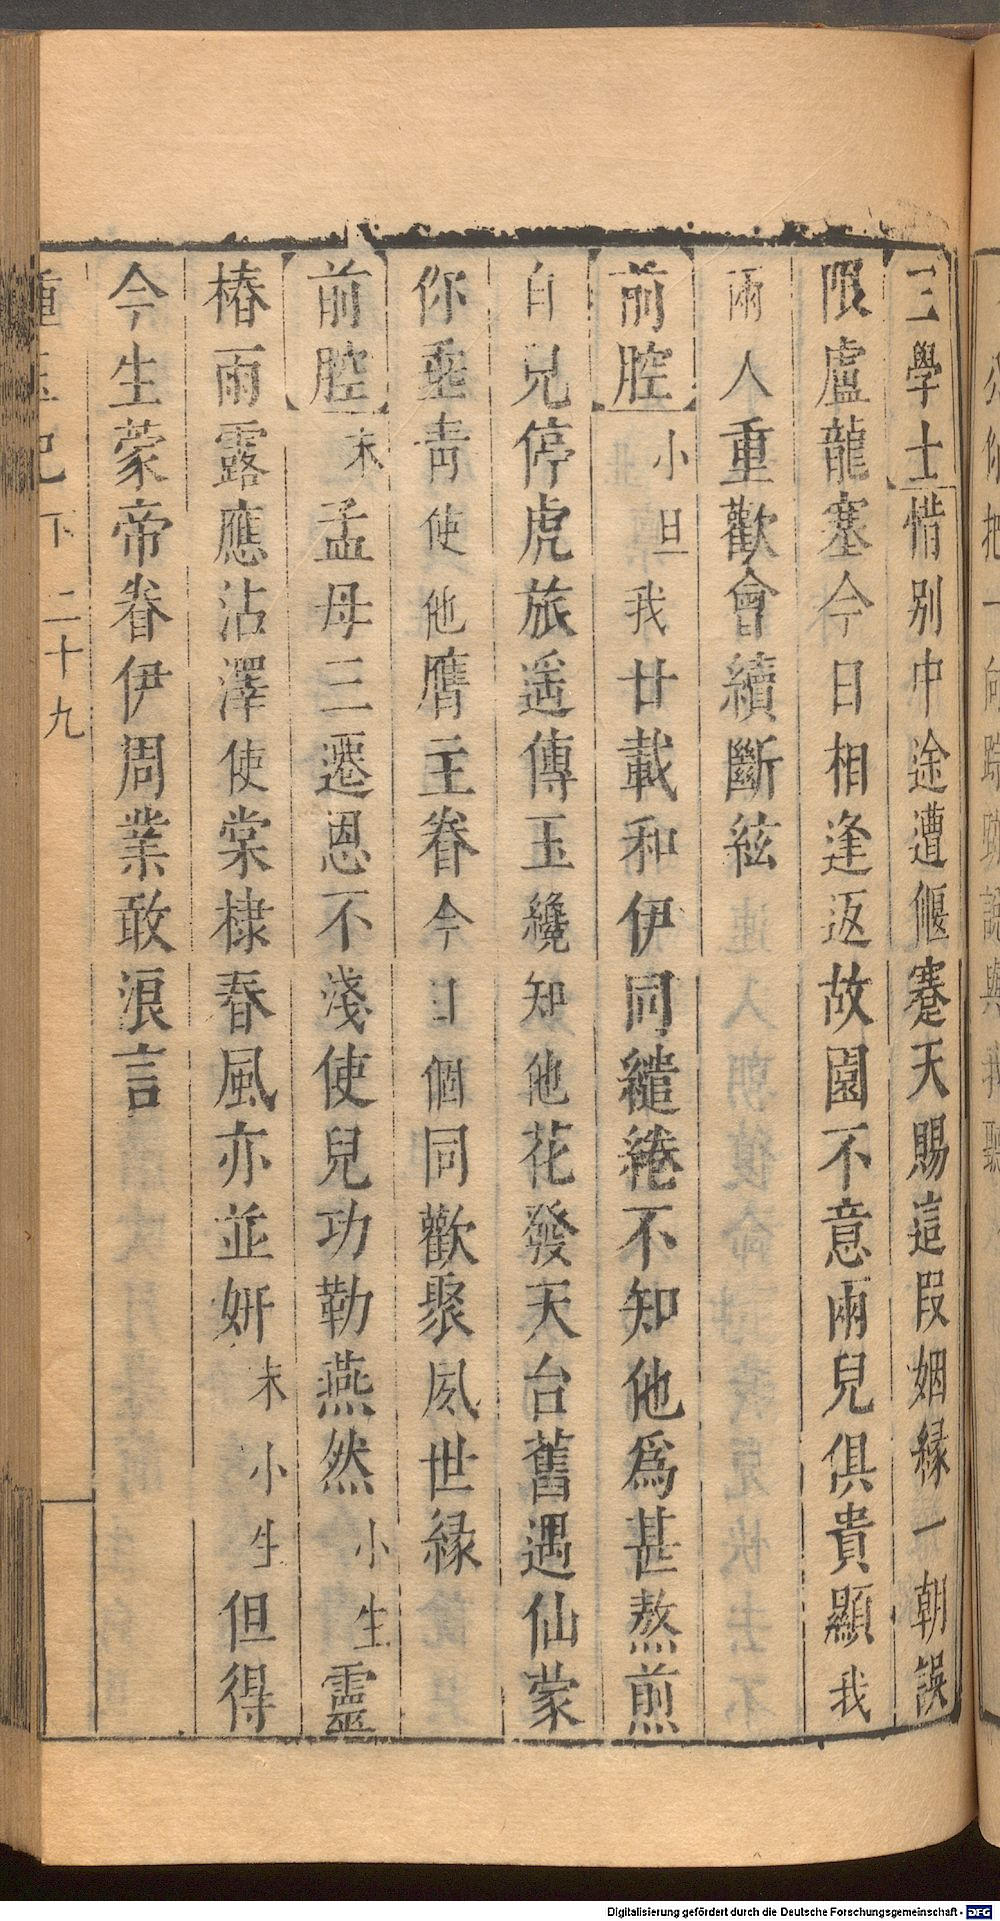 三學士惜別中途遭偃蹇天賜這叚姻緣一朝誤
限盧龍塞今日相逢返故園不意兩兒俱貴顯我
兩人重歡會續斷絃
前腔小旦我廿載和伊同繾綣不知他爲甚熬煎
自兄停虎旅遥傳玉纔知他花發天台舊遇仙蒙
你垂青使他膺主眷今日個同歡聚夙世緣
前腔末孟母三遷恩不淺使兒功勒燕然小生靈
椿雨露應沾澤使棠棣春風亦並妍末小生但得
今生蒙帝眷伊周業敢浪言
下 二十九
Digitalisierung gefördert durch die Deutsche Forschungsgemeinschaft - DFG